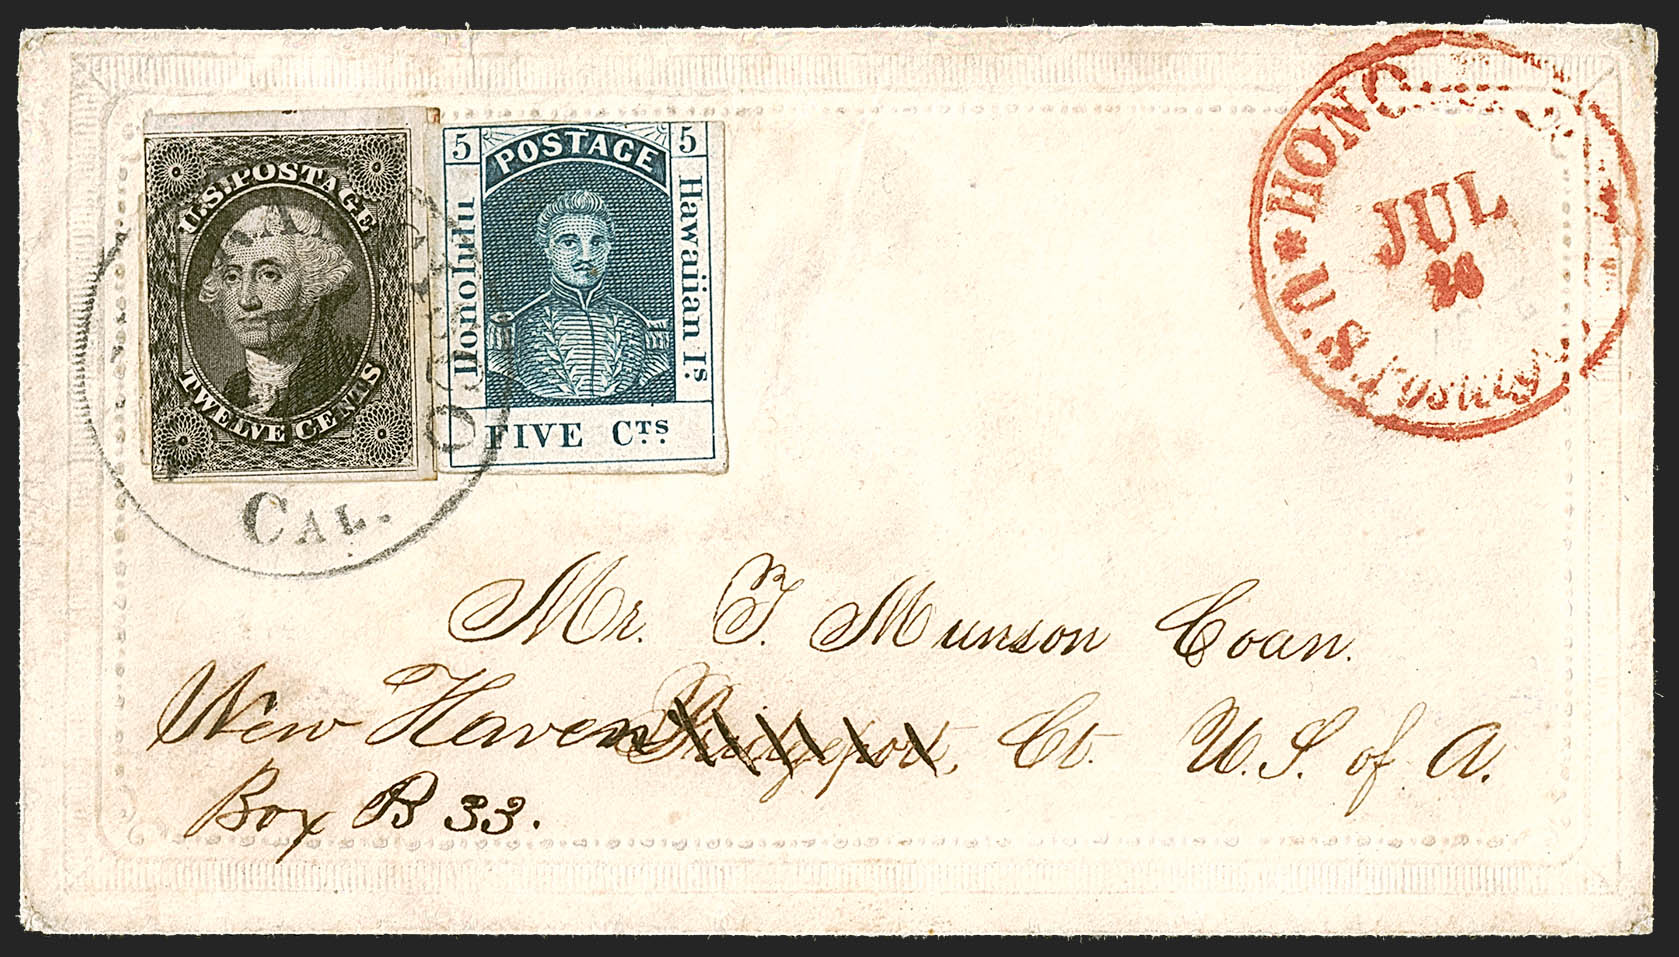 U.S. POSTAGE
TWELVE CENTS
5 POSTAGE 5
Honolulu
Hawaiian Is.
FIVE CTS.
CAL.
U.S.
JUL
Mr. T. Munson Coan.
New Haven Bridgeport, Ct. U.S. of A.
Box B 33.